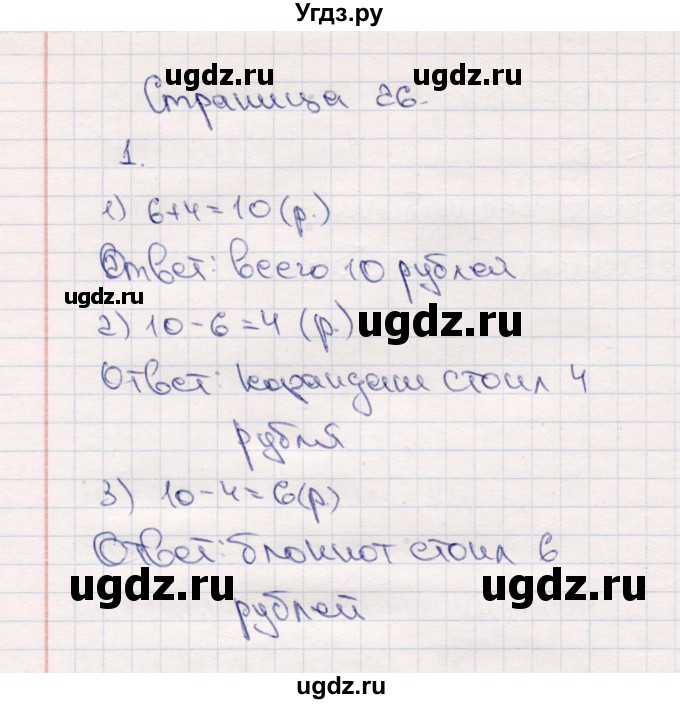 Угдз.ру
ugdz.ru ugdz.ru
Страница 26.
1.
1) 6+4=10 (р.)
Ответ: всего 10 рублей
ugdz.ru
2) 10-6=4 (р.) ugdz.ru
Ответ: карандаш стоил 4
рубля
3) 10-4=6(р.)
Ответ: блокнот стоил 6
ugdz.ru ugdz.ru
рублей
ugdz.ru